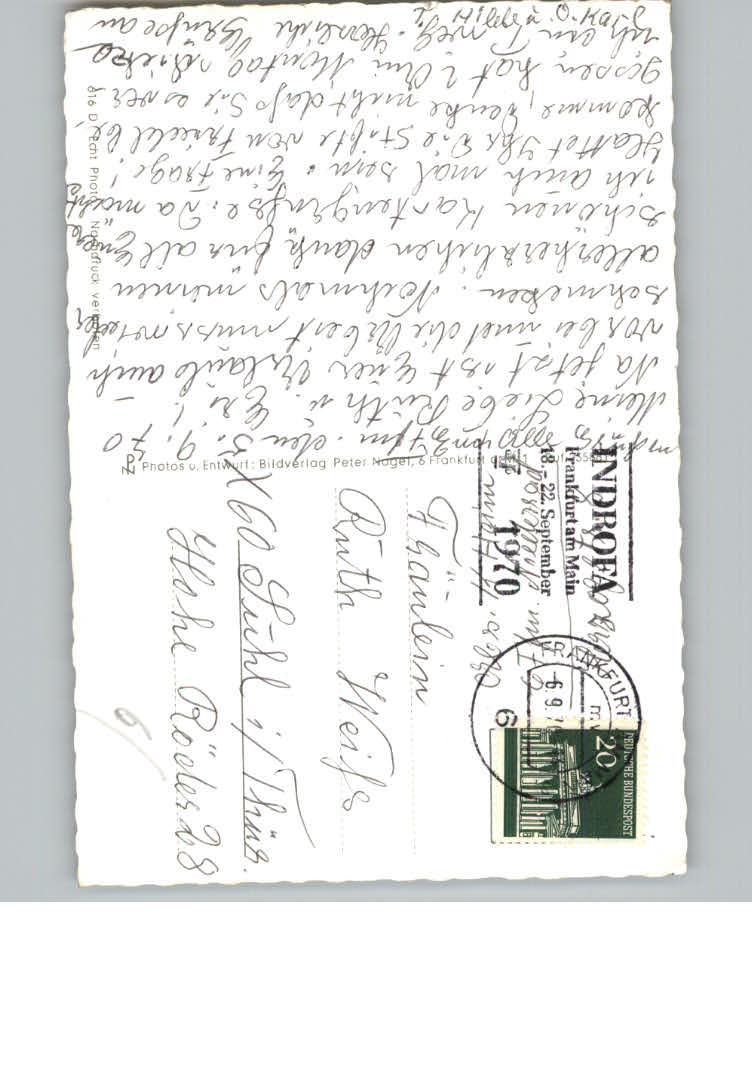 den 5.9.70
Meine Liebe Ruth u. Er.! –
Na jetzt ist Euer Urlaub auch
vorbei und die Arbeit muss wieder
schmecken. Nochmals meinen
allerherzlichen dank für all Eure
schönen Kartengrüsse. Da möcht
ich auch mal sein. Eine Frage!
Hattet Ihr die Stifte von Friedel be,
komme, denke nicht daß Sie es ver
gessen hat? Am Montag
ich ein weg. Herzliche Grüße an
616 D Echt Photo Nachdruck verboten
PN Photos u. Entwurf: Bildverlag Peter Nagel, 6 Frankfurt
INDROFA
Frankfurt am Main
18. - 22. September
1970
FRANKFURT
6.9.7
6
DEUTSCHE BUNDESPOST
20
Fräulein
Ruth Weiße
X 60 Suhl i/Thür.
Hohe Röder 28
6